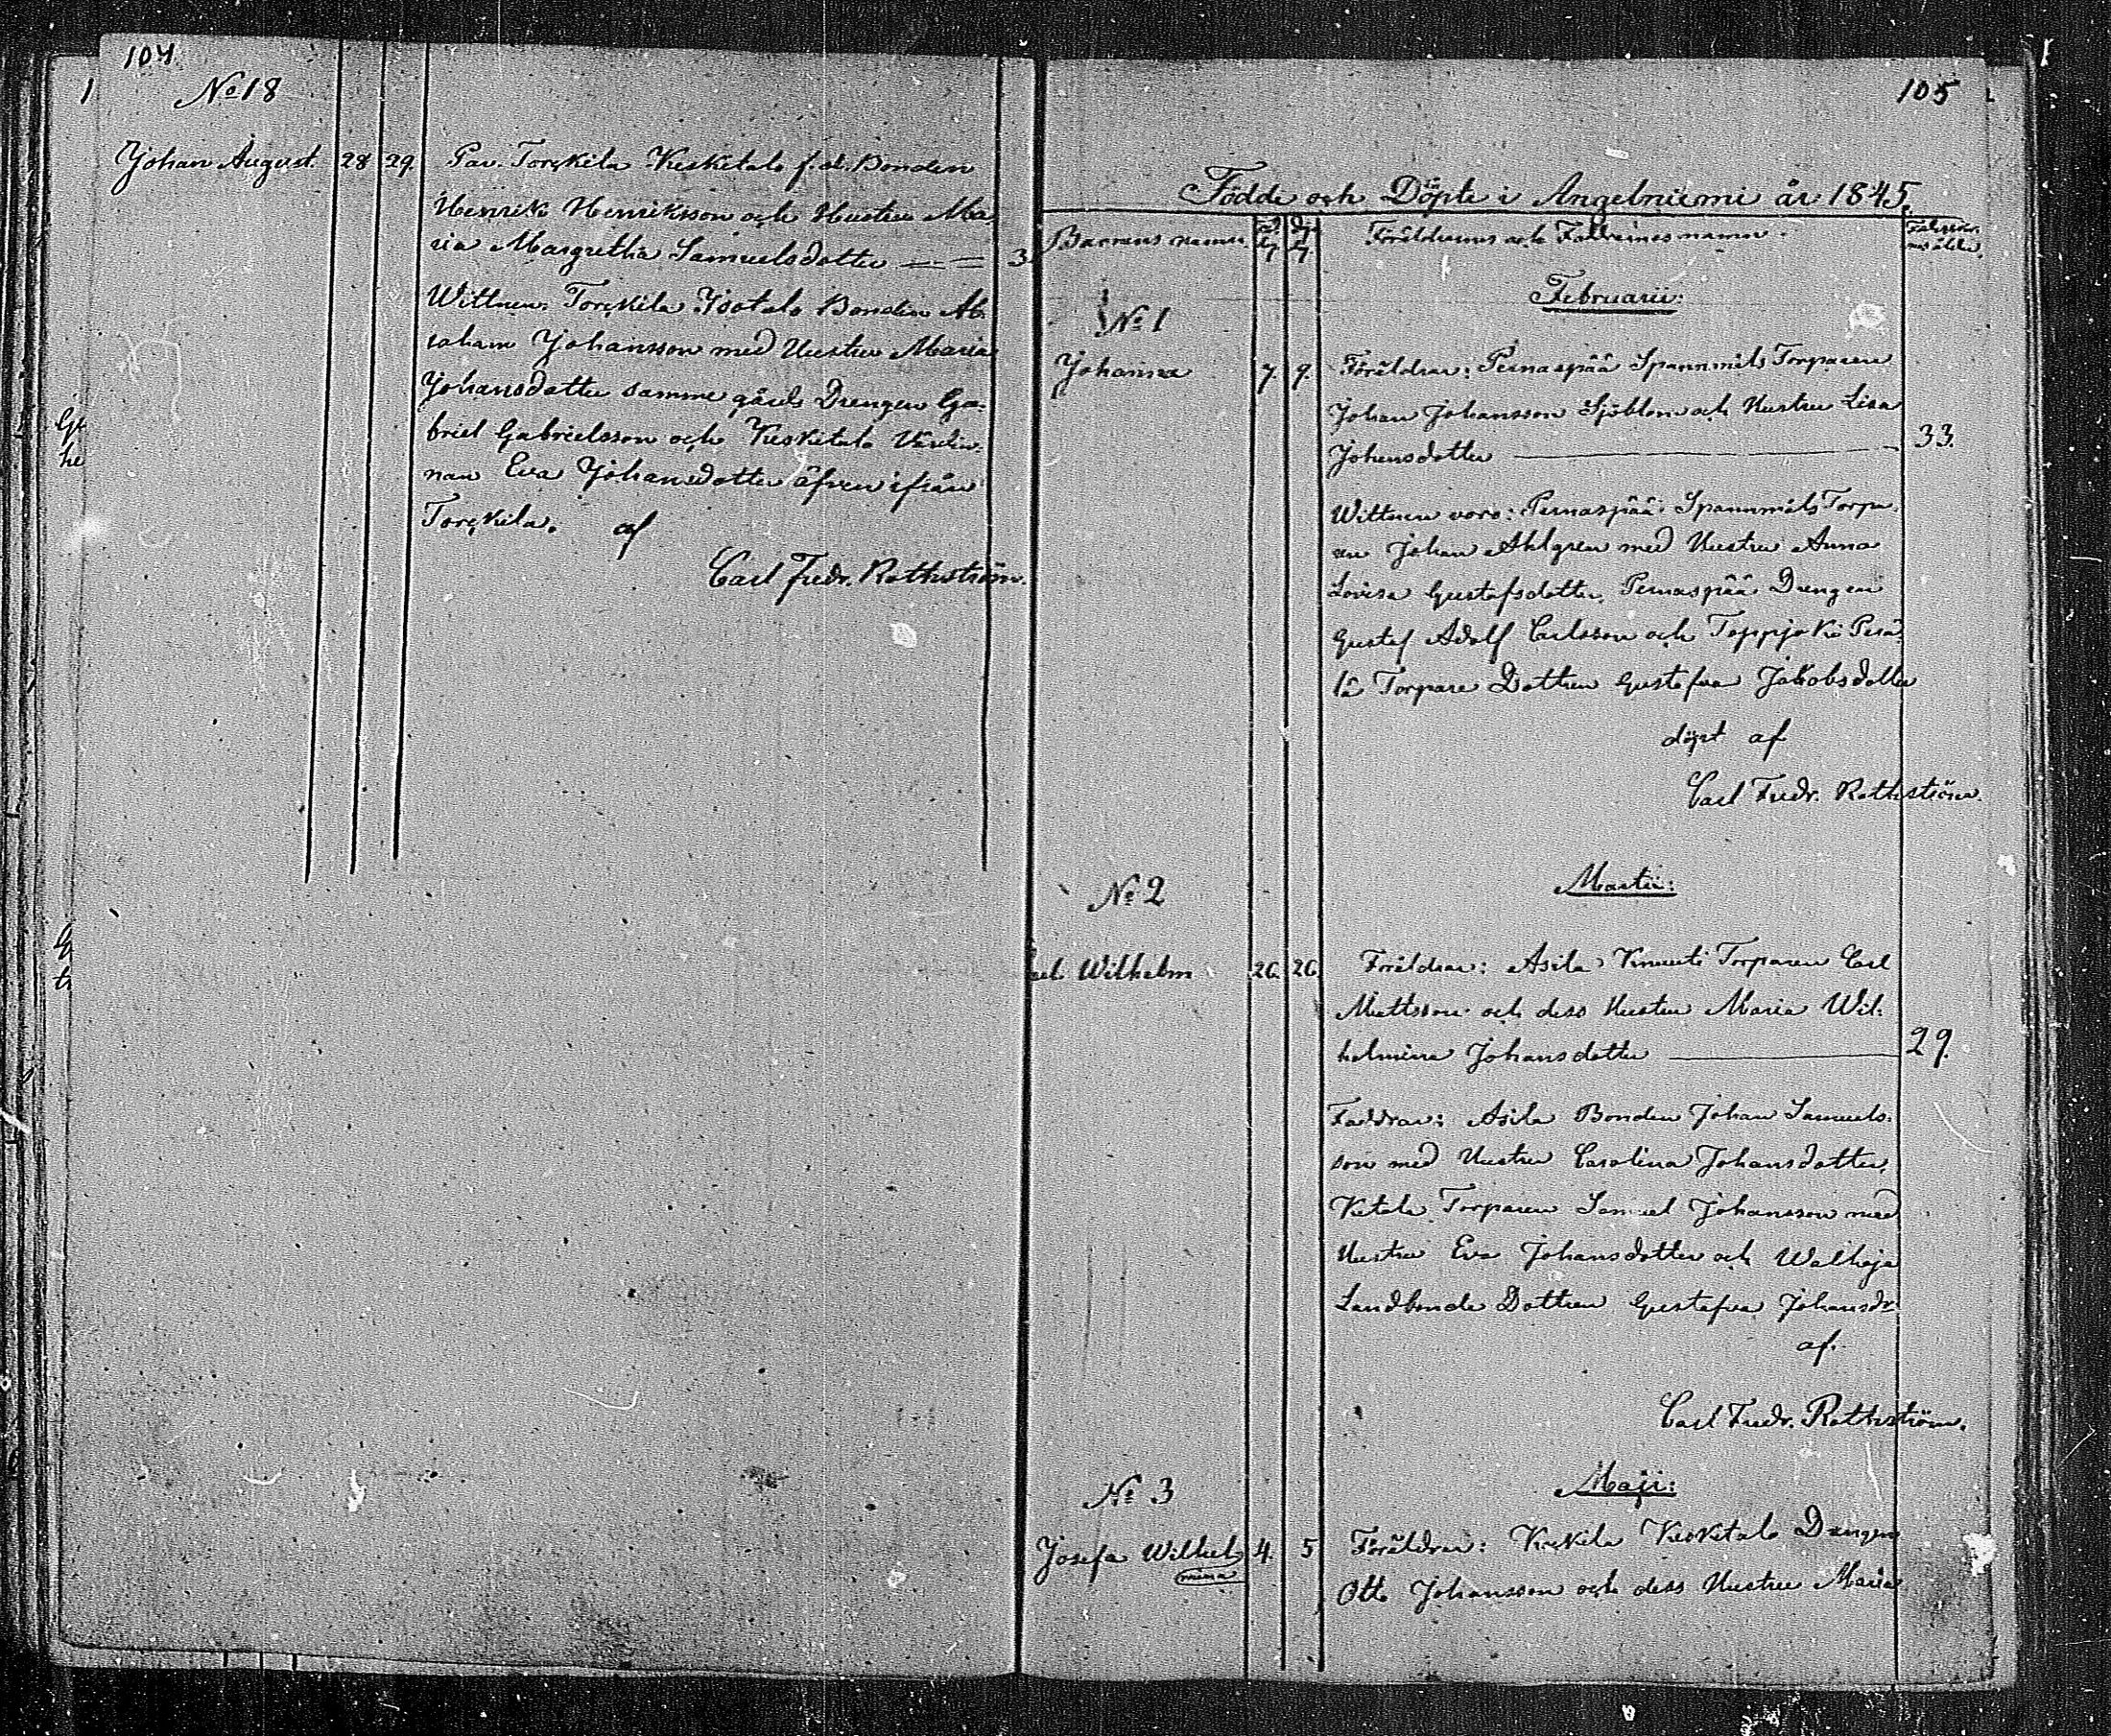 104
No 18
Johan August 28 29. Par. Torkkila Keskitalo f.d. Bonden
Henrik Henriksson och Hustru Ma-
ria Margretha Samuelsdotter 3
Wittnen: Torkkila Isotalo Bonden Ab-
raham Johansson med Hustru Maria
Johansdotter samme gårds Drengen Ga-
briel Gabrielsson och Keskitalo Värdin-
nan Eva Johansdotter äfven ifrån
Torkkila. af
Carl Fredr. Rothström.
105
Födde och Döpte i Angelniemi år 1845.
Barnens namn Föräldrarnes och Faddrarnes namn.
Februarii:
No 1
Johanna 7. 9. Föräldrar: Pernaspää Spannmåls Torparen
Johan Johansson Sjöblom och Hustru Lisa
Johansdotter 33.
Wittnen voro: Pernaspää Spannmåls Torpa-
ren Johan Ahlgren med Hustru Anna
Lovisa Gustafsdotter, Pernaspää Drengen
Gustaf Adolf Carlsson och Toppjoki Perä-
lä Torpare Dottren Gustafva Jakobsdotter
döpt af
Carl Fredr. Rothström.
Martii:
No 2
Wilhelm 26. 26. Föräldrar: Asila Knuuti Torparen Carl
Mattsson och dess Hustru Maria Wil-
helmina Johansdotter 29.
Faddrar: Asila Bonden Johan Samuels-
son med Hustru Carolina Johansdotter,
Ketala Torparen Samuel Johansson med
Hustru Eva Johansdotter och Walhoja
Landbonde Dottren Gustafva Johansdr
af.
Carl Fredr. Rothström.
Maji:
No 3
Josefa Wilhel- 4. 5 Föräldrar: Keskitalo Drengen
mina
Otto Johansson och dess Hustru Maria